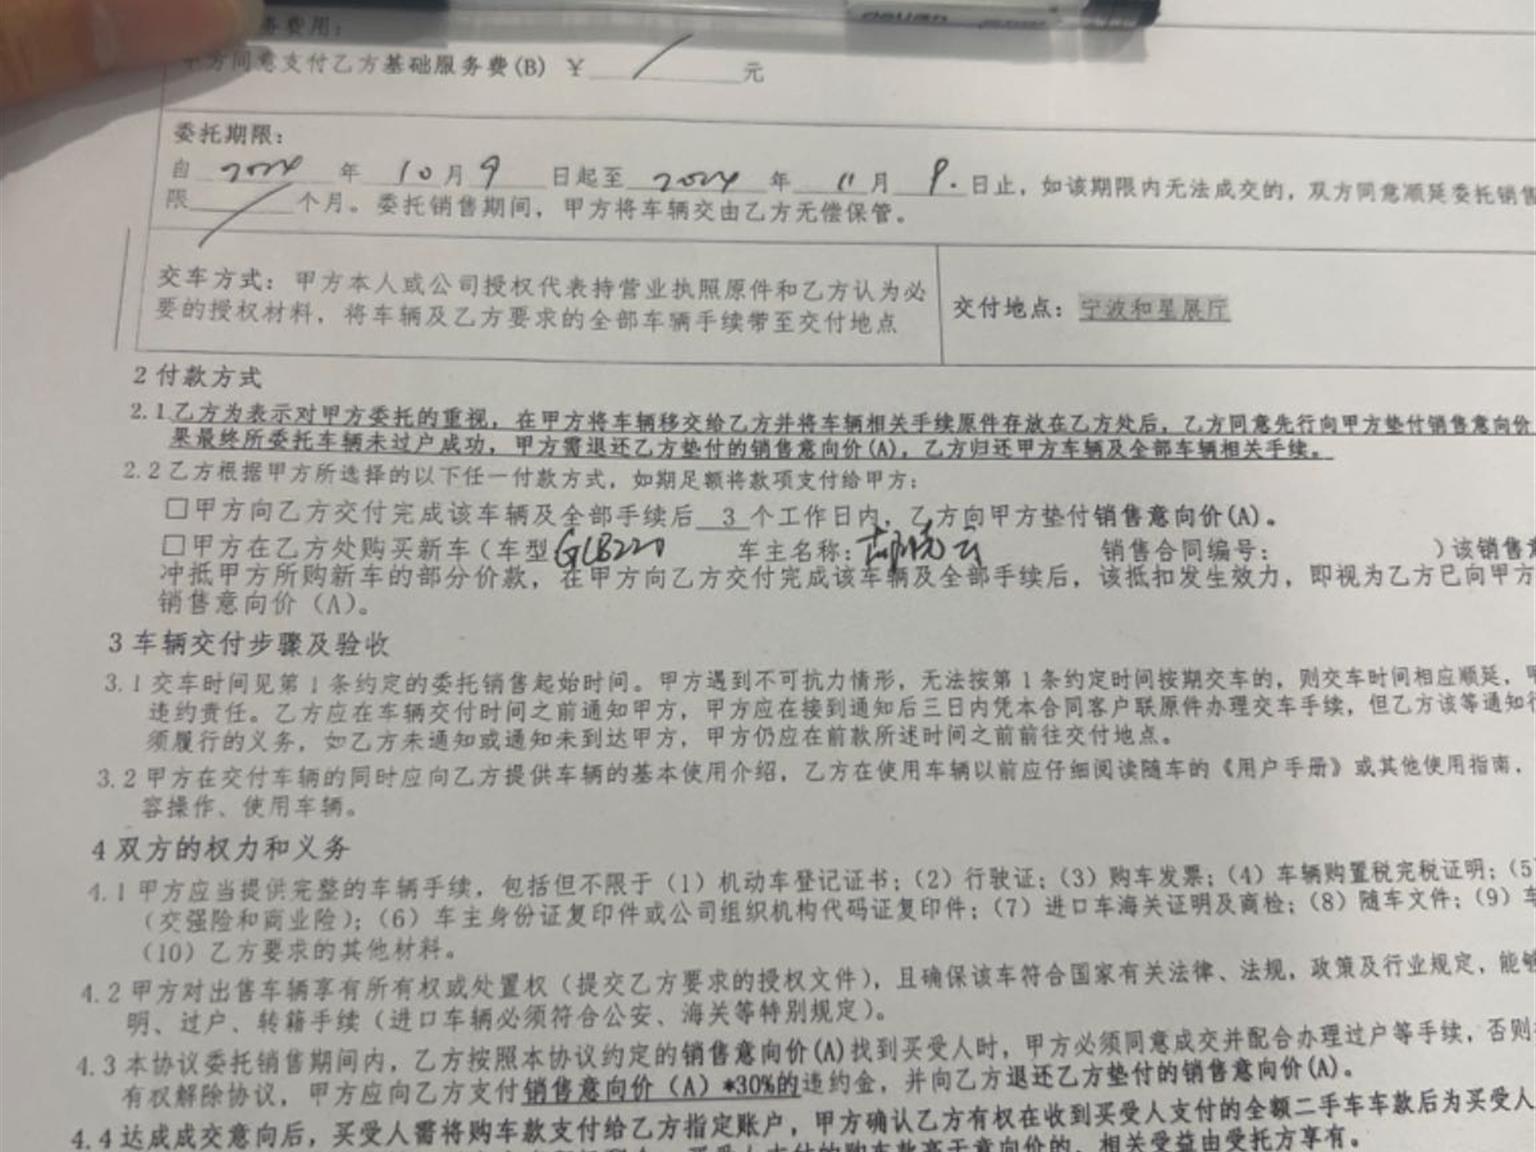 务费用：
甲方同意支付乙方基础服务费(B) ￥ / 元
委托期限：
自 2024 年 10 月 9 日起至 2024 年 11 月 9. 日止，如该期限内无法成交的，双方同意顺延委托销售
限 / 个月。委托销售期间，甲方将车辆交由乙方无偿保管。
交车方式：甲方本人或公司授权代表持营业执照原件和乙方认为必
要的授权材料，将车辆及乙方要求的全部车辆手续带至交付地点
交付地点：宁波和星展厅
2 付款方式
2.1 乙方为表示对甲方委托的重视，在甲方将车辆移交给乙方并将车辆相关手续原件存放在乙方处后，乙方同意先行向甲方垫付销售意向价
果最终所委托车辆未过户成功，甲方需退还乙方垫付的销售意向价(A)，乙方归还甲方车辆及全部车辆相关手续。
2.2 乙方根据甲方所选择的以下任一付款方式，如期足额将款项支付给甲方：
□甲方向乙方交付完成该车辆及全部手续后 3 个工作日内，乙方向甲方垫付销售意向价(A)。
□甲方在乙方处购买新车（车型 GLB220 车主名称： 销售合同编号： ）该销售意
冲抵甲方所购新车的部分价款，在甲方向乙方交付完成该车辆及全部手续后，该抵扣发生效力，即视为乙方已向甲方
销售意向价（A）。
3 车辆交付步骤及验收
3.1 交车时间见第 1 条约定的委托销售起始时间。甲方遇到不可抗力情形，无法按第 1 条约定时间按期交车的，则交车时间相应顺延，甲
违约责任。乙方应在车辆交付时间之前通知甲方，甲方应在接到通知后三日内凭本合同客户联原件办理交车手续，但乙方该等通知行
须履行的义务，如乙方未通知或通知未到达甲方，甲方仍应在前款所述时间之前前往交付地点。
3.2 甲方在交付车辆的同时应向乙方提供车辆的基本使用介绍，乙方在使用车辆以前应仔细阅读随车的《用户手册》或其他使用指南，
容操作、使用车辆。
4 双方的权力和义务
4.1 甲方应当提供完整的车辆手续，包括但不限于（1）机动车登记证书；（2）行驶证；（3）购车发票；（4）车辆购置税完税证明；（5
（交强险和商业险）；（6）车主身份证复印件或公司组织机构代码证复印件；（7）进口车海关证明及商检；（8）随车文件；（9）车
（10）乙方要求的其他材料。
4.2 甲方对出售车辆享有所有权或处置权（提交乙方要求的授权文件），且确保该车符合国家有关法律、法规，政策及行业规定，能够
明、过户、转籍手续（进口车辆必须符合公安、海关等特别规定）。
4.3 本协议委托销售期间内，乙方按照本协议约定的销售意向价(A)找到买受人时，甲方必须同意成交并配合办理过户等手续，否则
有权解除协议，甲方应向乙方支付销售意向价（A）*30%的违约金，并向乙方退还乙方垫付的销售意向价(A)。
4.4 达成成交意向后，买受人需将购车款支付给乙方指定账户，甲方确认乙方有权在收到买受人支付的全额二手车车款后为买受人
买受人支付的购车款高于意向价的，相关受益由受托方享有。